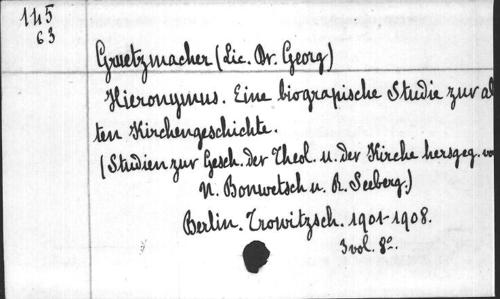 145
63
Gruetzmacher (Lic. Dr. Georg)
Hieronymus. Eine biograpische Studie zur al
ten Kirchengeschichte.
(Studien zur Gesch. der Theol. u. der Kirche hersgeg. vo
N. Bonwetsch u. R. Seeberg.)
Berlin. Trowitzsch. 1901-1908.
3 vol. 8º.